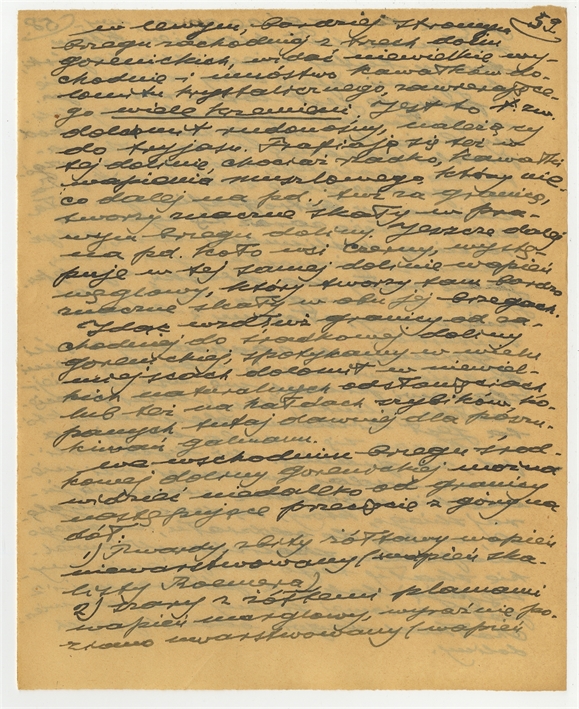 59.
w lewym, bardziej stromym
brzegu zachodniej z trzech dolin
gorenickich, widać niewielkie wy-
chodnie i mnóstwo kawałków do-
lomitu krystalicznego, zawierające-
go wiele krzemieni. Jest to t. zw.
dolomit rudonośny, należący
do tryjasu. Trafiają się też w
tej dolinie, chociaż rzadko, kawałki
wapienia muszlowego, który nie-
co dalej na pd., tuż za granicą,
tworzy znaczne skały w pra-
wym brzegu doliny. Jeszcze dalej
na pd. koło wsi Czerny, wystę-
puje w tej samej dolinie wapień
węglowy, który tworzy tam bardzo
znaczne skały w obu jej brzegach.
Idąc wzdłuż granicy od za-
chodniej do środkowej doliny
gorenickiej, spotykamy w wielu
miejscach dolomit w niewiel-
kich naturalnych odsłonięciach,
lub też na hałdach szybików, ko-
panych tutaj dawniej dla poszu-
kiwań galmanu.
We wschodnim brzegu środ-
kowej doliny gorenickiej można
widzieć niedaleko od granicy
następujące przecięcie z góry na
dół:
1) Twardy zbity żółtawy wapień
nieuwarstwowany (wapień ska-
listy Roemera)
2) Szary z żółtemi plamami
wapień marglowy, wyraźnie po-
ziomo uwarstwowany (wapień